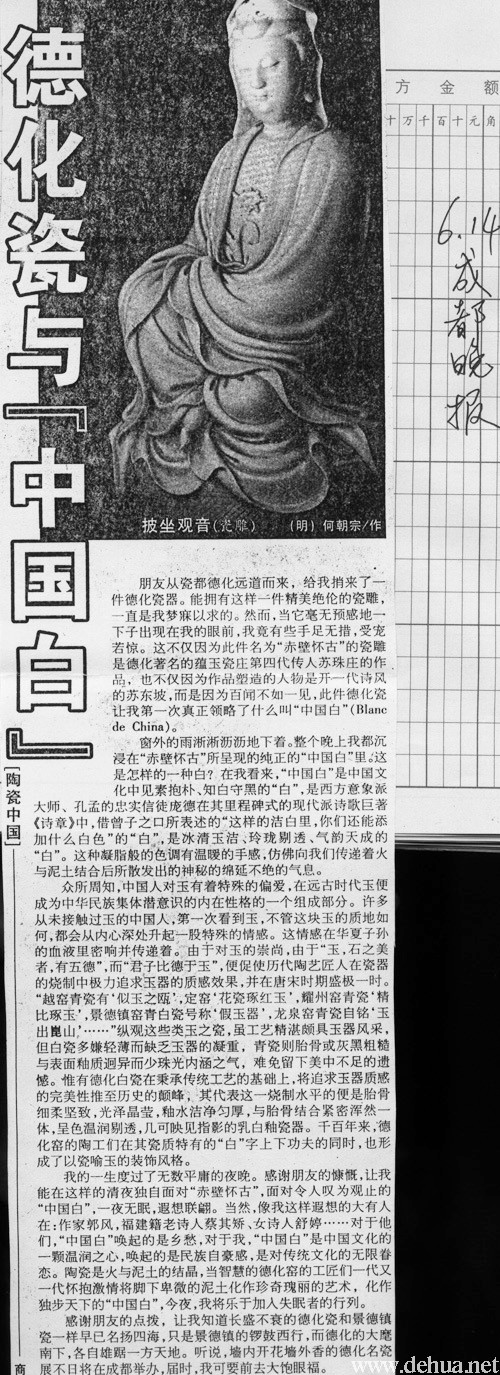 德化瓷与『中国白』
[陶瓷中国]
披坐观音(瓷雕) (明) 何朝宗/作
方金额
十万千百十元角
6.14
成都晚报
朋友从瓷都德化远道而来，给我捎来了一
件德化瓷器。能拥有这样一件精美绝伦的瓷雕，
一直是我梦寐以求的。然而，当它毫无预感地一
下子出现在我的眼前，我竟有些手足无措，受宠
若惊。这不仅因为此件名为“赤壁怀古”的瓷雕
是德化著名的蕴玉瓷庄第四代传人苏珠庄的作
品，也不仅因为作品塑造的人物是开一代诗风
的苏东坡，而是因为百闻不如一见，此件德化瓷
让我第一次真正领略了什么叫“中国白”(Blanc
de China)。
窗外的雨淅淅沥沥地下着。整个晚上我都沉
浸在“赤壁怀古”所呈现的纯正的“中国白”里。这
是怎样的一种白？在我看来，“中国白”是中国文
化中见素抱朴、知白守黑的“白”，是西方意象派
大师、孔孟的忠实信徒庞德在其里程碑式的现代派诗歌巨著
《诗章》中，借曾子之口所表述的“这样的洁白里，你们还能添
加什么白色”的“白”，是冰清玉洁、玲珑剔透、气韵天成的
“白”。这种凝脂般的色调有温暖的手感，仿佛向我们传递着火
与泥土结合后所散发出的神秘的绵延不绝的气息。
众所周知，中国人对玉有着特殊的偏爱，在远古时代玉便
成为中华民族集体潜意识的内在性格的一个组成部分。许多
从未接触过玉的中国人，第一次看到玉，不管这块玉的质地如
何，都会从内心深处升起一股特殊的情感。这情感在华夏子孙
的血液里密响并传递着。由于对玉的崇尚，由于“玉，石之美
者，有五德”，而“君子比德于玉”，便促使历代陶艺匠人在瓷器
的烧制中极力追求玉器的质感效果，并在唐宋时期盛极一时。
“越窑青瓷有‘似玉之瓯’，定窑‘花瓷琢红玉’，耀州窑青瓷‘精
比琢玉’，景德镇窑青白瓷号称‘假玉器’，龙泉窑青瓷自铭‘玉
出崑山’……”纵观这些类玉之瓷，虽工艺精湛颇具玉器风采，
但白瓷多嫌轻薄而缺乏玉器的凝重，青瓷则胎骨或灰黑粗糙
与表面釉质迥异而少珠光内涵之气，难免留下美中不足的遗
憾。惟有德化白瓷在秉承传统工艺的基础上，将追求玉器质感
的完美性推至历史的颠峰，其代表这一烧制水平的便是胎骨
细柔坚致，光泽晶莹，釉水洁净匀厚，与胎骨结合紧密浑然一
体，呈色温润剔透，几可映见指影的乳白釉瓷器。千百年来，德
化窑的陶工们在其瓷质特有的“白”字上下功夫的同时，也形
成了以瓷喻玉的装饰风格。
我的一生度过了无数平庸的夜晚。感谢朋友的慷慨，让我
能在这样的清夜独自面对“赤壁怀古”，面对令人叹为观止的
“中国白”，一夜无眠，遐想联翩。当然，像我这样遐想的大有人
在：作家郭风，福建籍老诗人蔡其矫、女诗人舒婷……对于他
们，“中国白”唤起的是乡愁，对于我，“中国白”是中国文化的
一颗温润之心，唤起的是民族自豪感，是对传统文化的无限眷
恋。陶瓷是火与泥土的结晶，当智慧的德化窑的工匠们一代又
一代怀抱激情将脚下卑微的泥土化作珍奇瑰丽的艺术，化作
独步天下的“中国白”，今夜，我将乐于加入失眠者的行列。
感谢朋友的点拨，让我知道长盛不衰的德化瓷和景德镇
瓷一样早已名扬四海，只是景德镇的锣鼓西行，而德化的大麾
南下，各自雄踞一方天地。听说，墙内开花墙外香的德化名瓷
展不日将在成都举办，届时，我可要前去大饱眼福。
商
www.dehua.net